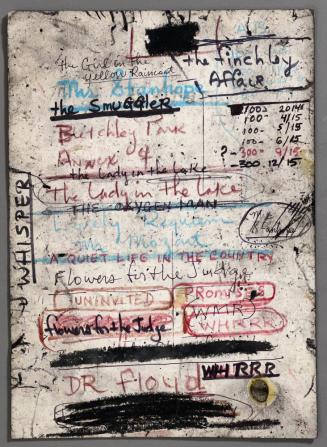 the Girl in the
yellow Raincoat
the Finchley
Affair
Mrs Stanhope
the SMUGGLER
100- 2014
100- 4/15
100- 5/15
100- 6/15
?-300- 9/15
-300. 12/15
Bletchley Park
Annex 4
the Lady in the Lake
The Lady in the Lake
THE OXYGEN MAN
WHISPER
Lovely Requiem
Mr Mozart
A QUIET LIFE IN THE COUNTRY
Flowers for the Judge
UNINVITED
PROMISES
WMRS
Flowers for the Judge
WHRRR
WHRRR
DR Floyd